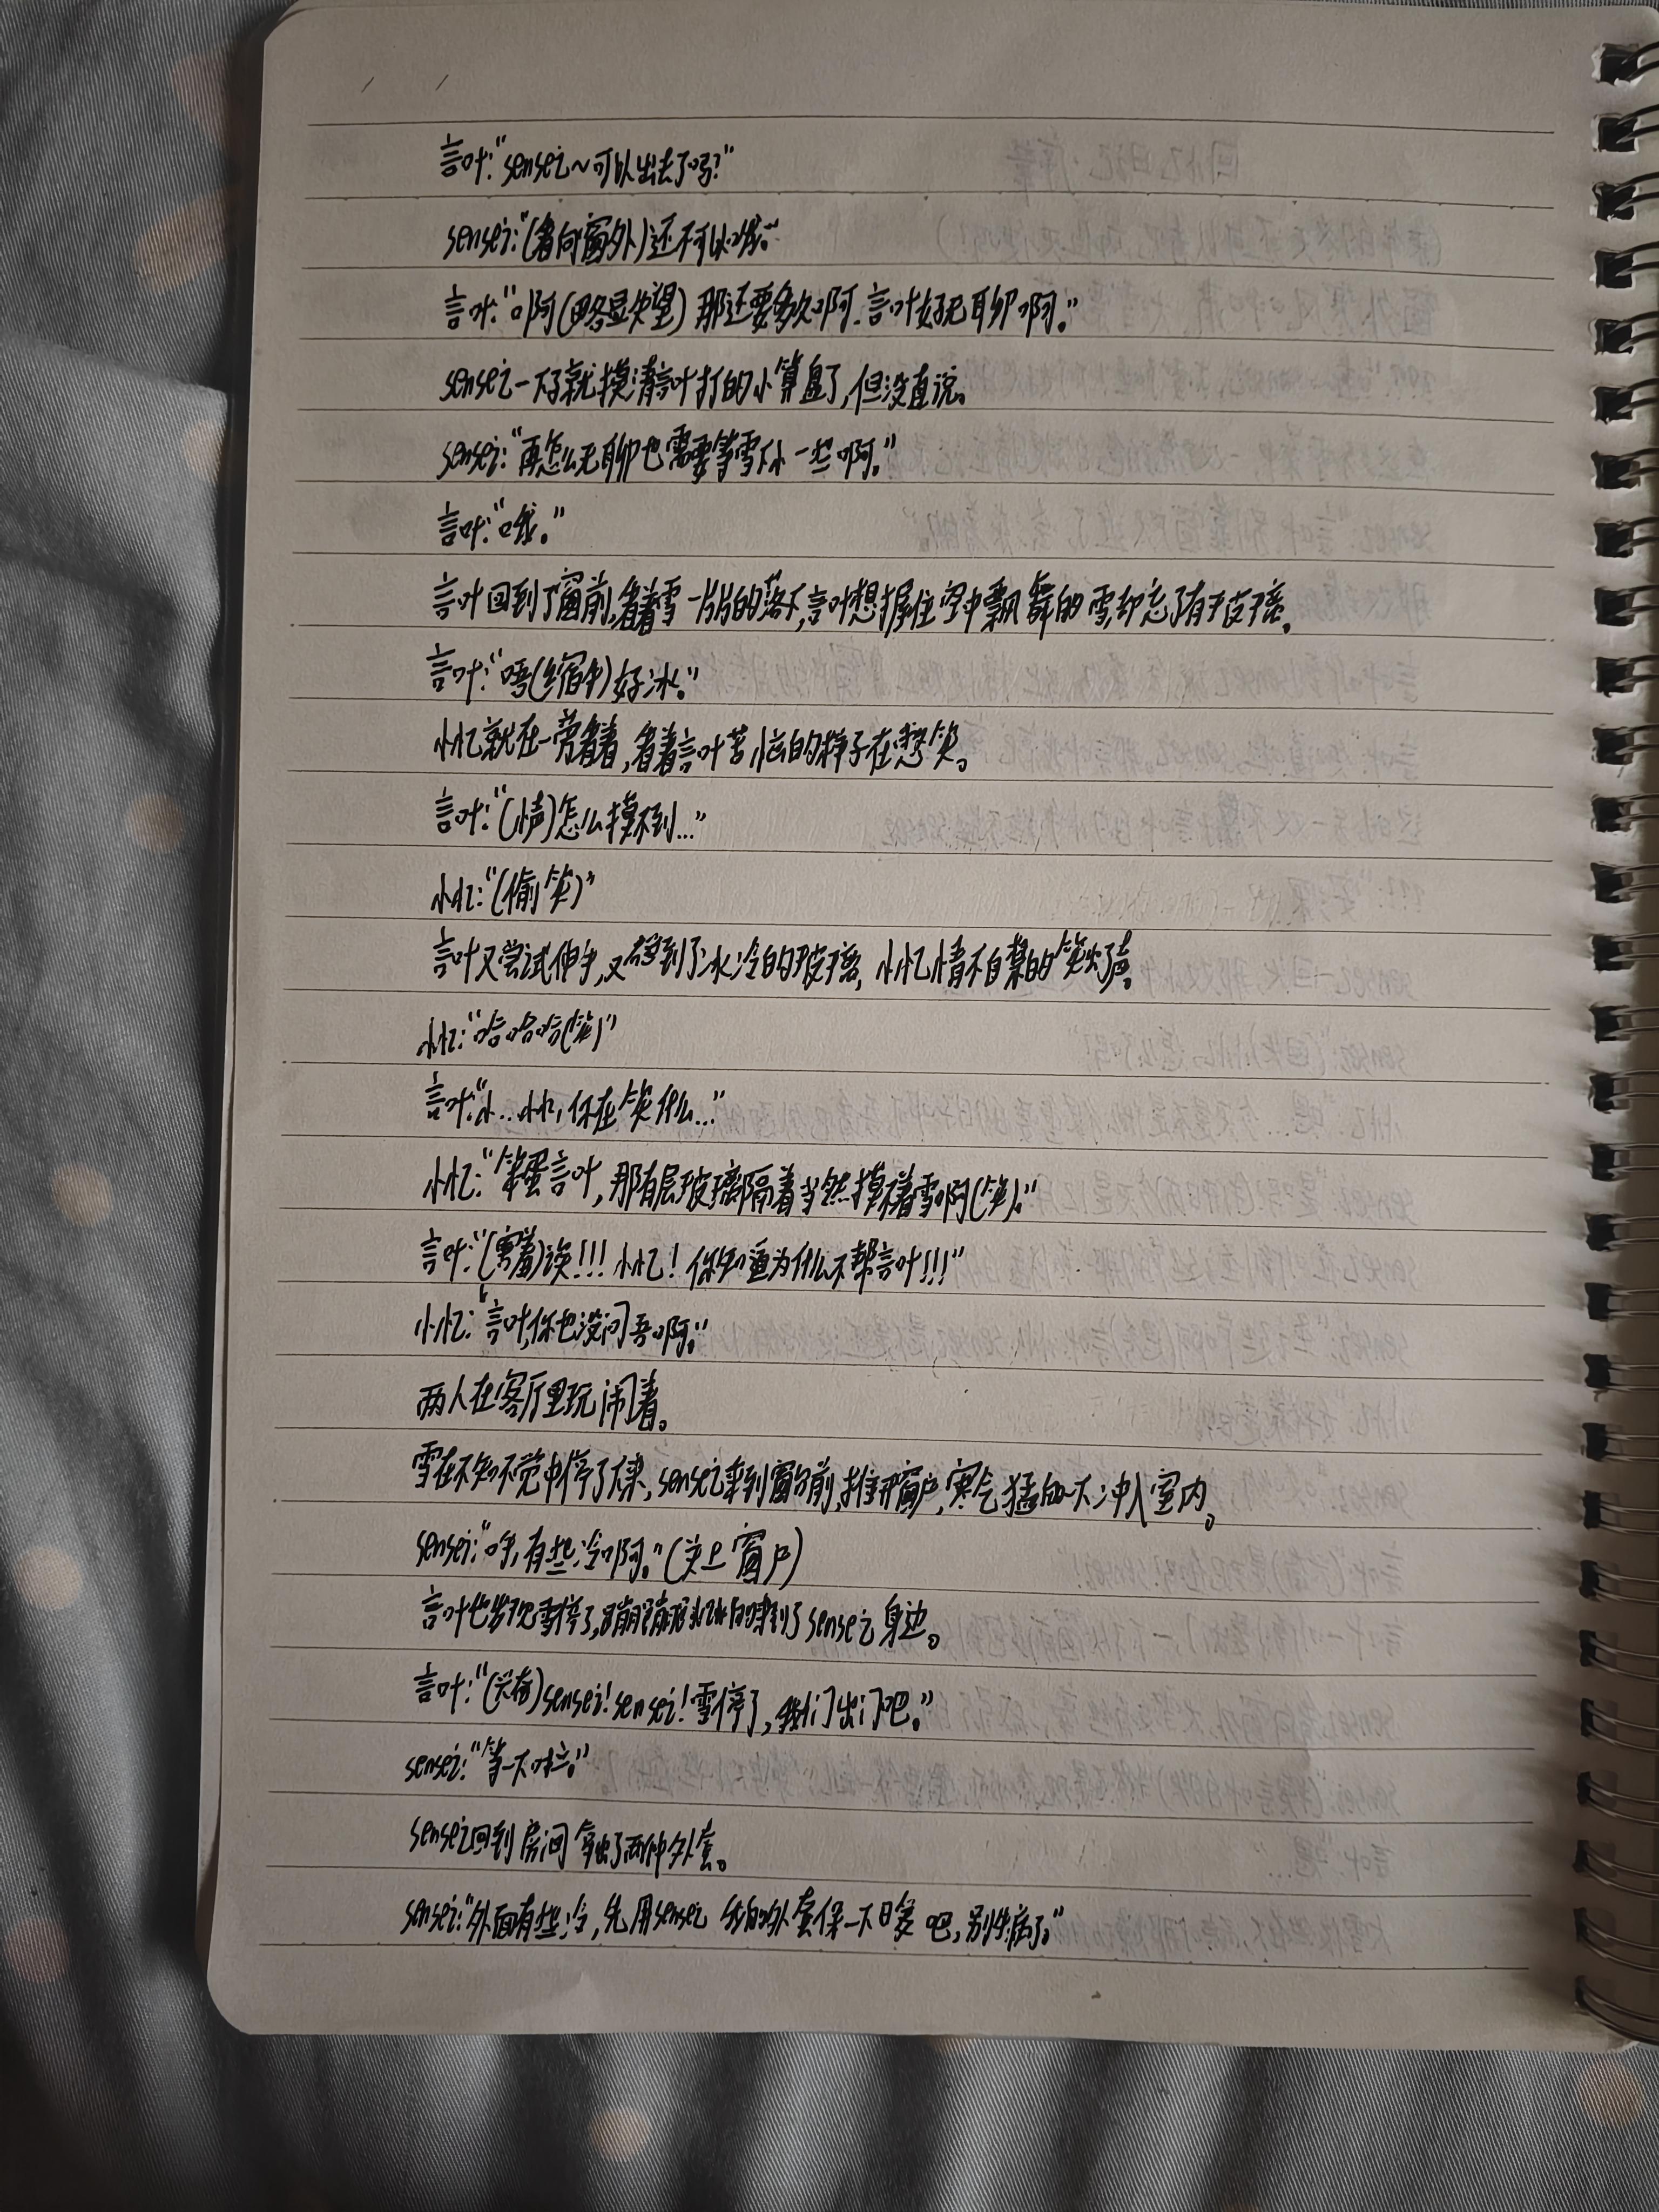 言叶:“sensei～可以出去了吗?”
sensei:“(看向窗外)还不可以哦。”
言叶:“啊(略显失望)那还要多久啊.言叶好无聊啊。”
sensei一下子就摸清言叶打的小算盘了,但没直说。
sensei:“再怎么无聊也需要等雪下小一些啊。”
言叶:“哦。”
言叶回到了窗前,看着雪一片片的落下,言叶想握住空中飘舞的雪,却忘了有玻璃。
言叶:“唔(缩手)好冰。”
小忆就在一旁看着,看着言叶苦恼的样子在憋笑。
言叶:“(小声)怎么摸不到...”
小忆:“(偷笑)”
言叶又尝试伸手,又碰到了冰冷的玻璃,小忆情不自禁的笑出了声。
小忆:“哈哈哈(笑)”
言叶:“小...小忆,你在笑什么...”
小忆:“笨蛋言叶,那有层玻璃隔着当然摸不着雪啊(笑)。”
言叶:“(害羞)诶!!!小忆!你知道为什么不帮言叶!!!”
小忆:“言叶,你也没问吾啊。”
两人在客厅里玩闹着。
雪在不知不觉中停了下来,sensei来到窗台前,推开窗户,寒气猛的一下冲入室内。
sensei:“呼,有些冷啊。”(关上窗户)
言叶也发现雪停了,蹦蹦跳跳的来到了sensei身边。
言叶:“(兴奋)sensei!sensei!雪停了,我们出门吧。”
sensei:“等一下啦。”
sensei回到房间拿出了两件外套。
sensei:“外面有些冷,先用sensei 我的外套保一下暖吧,别生病了。”